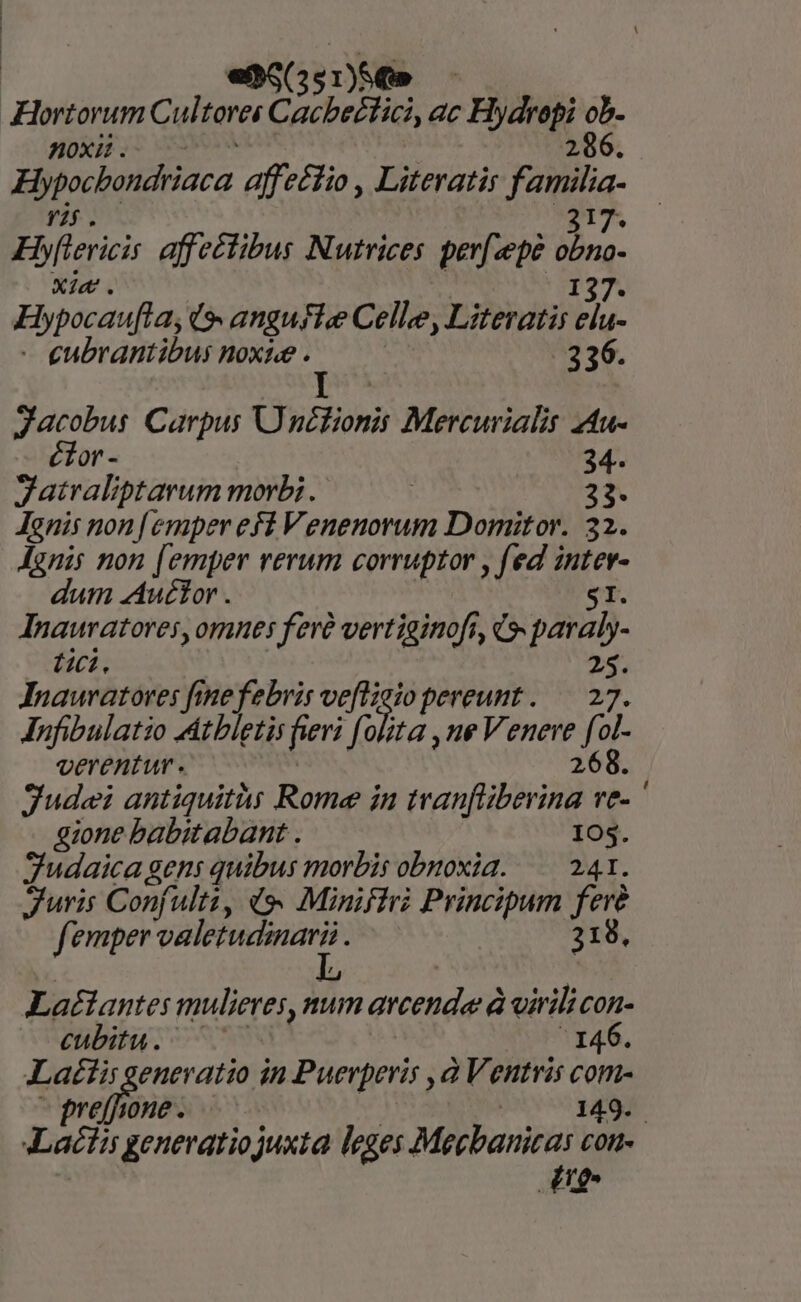 (351)
Hortorum Cultores Cachectici, ac Hydropi ob-
noxii. 286.
Hypochondriaca affectio, Literatis familia-
ris. 317.
Hyſtericis affectibus Nutrices perſæpè obno-
xiæ. 137.
Hypocauſta, & anguſtæ Cellæ, Literatis elu-
cubrantibus noxiæ. 336.
I
Jacobus Carpus Unctionis Mercurialis Au-
ctor- 34.
Jatraliptarum morbi. 33.
Ignis non ſemper eſt Venenorum Domitor. 32.
Ignis non ſemper rerum corruptor, ſed inter-
dum Auctor. 51.
Inauratores, omnes ferè vertiginoſi, & paraly-
tici. 25.
Inauratores ſine febris veſtigio pereunt. 27.
Infibulatio Athletis fieri ſolita, ne Venere ſol-
verentur. 268.
Judæi antiquitùs Romæ in tranſtiberina re-
gione habitabant. 105.
Judaica gens quibus morbis obnoxia. 241.
Juris Conſulti, & Miniſtri Principum ferè
ſemper valetudinarii. 318,
L
Lactantes mulieres, num arcendæ à virili con-
cubitu. 146.
Lactis generatio in Puerperis, à Ventris com-
preſſione. 149.
Lactis generatio juxta leges Mechanicas con-
tro-